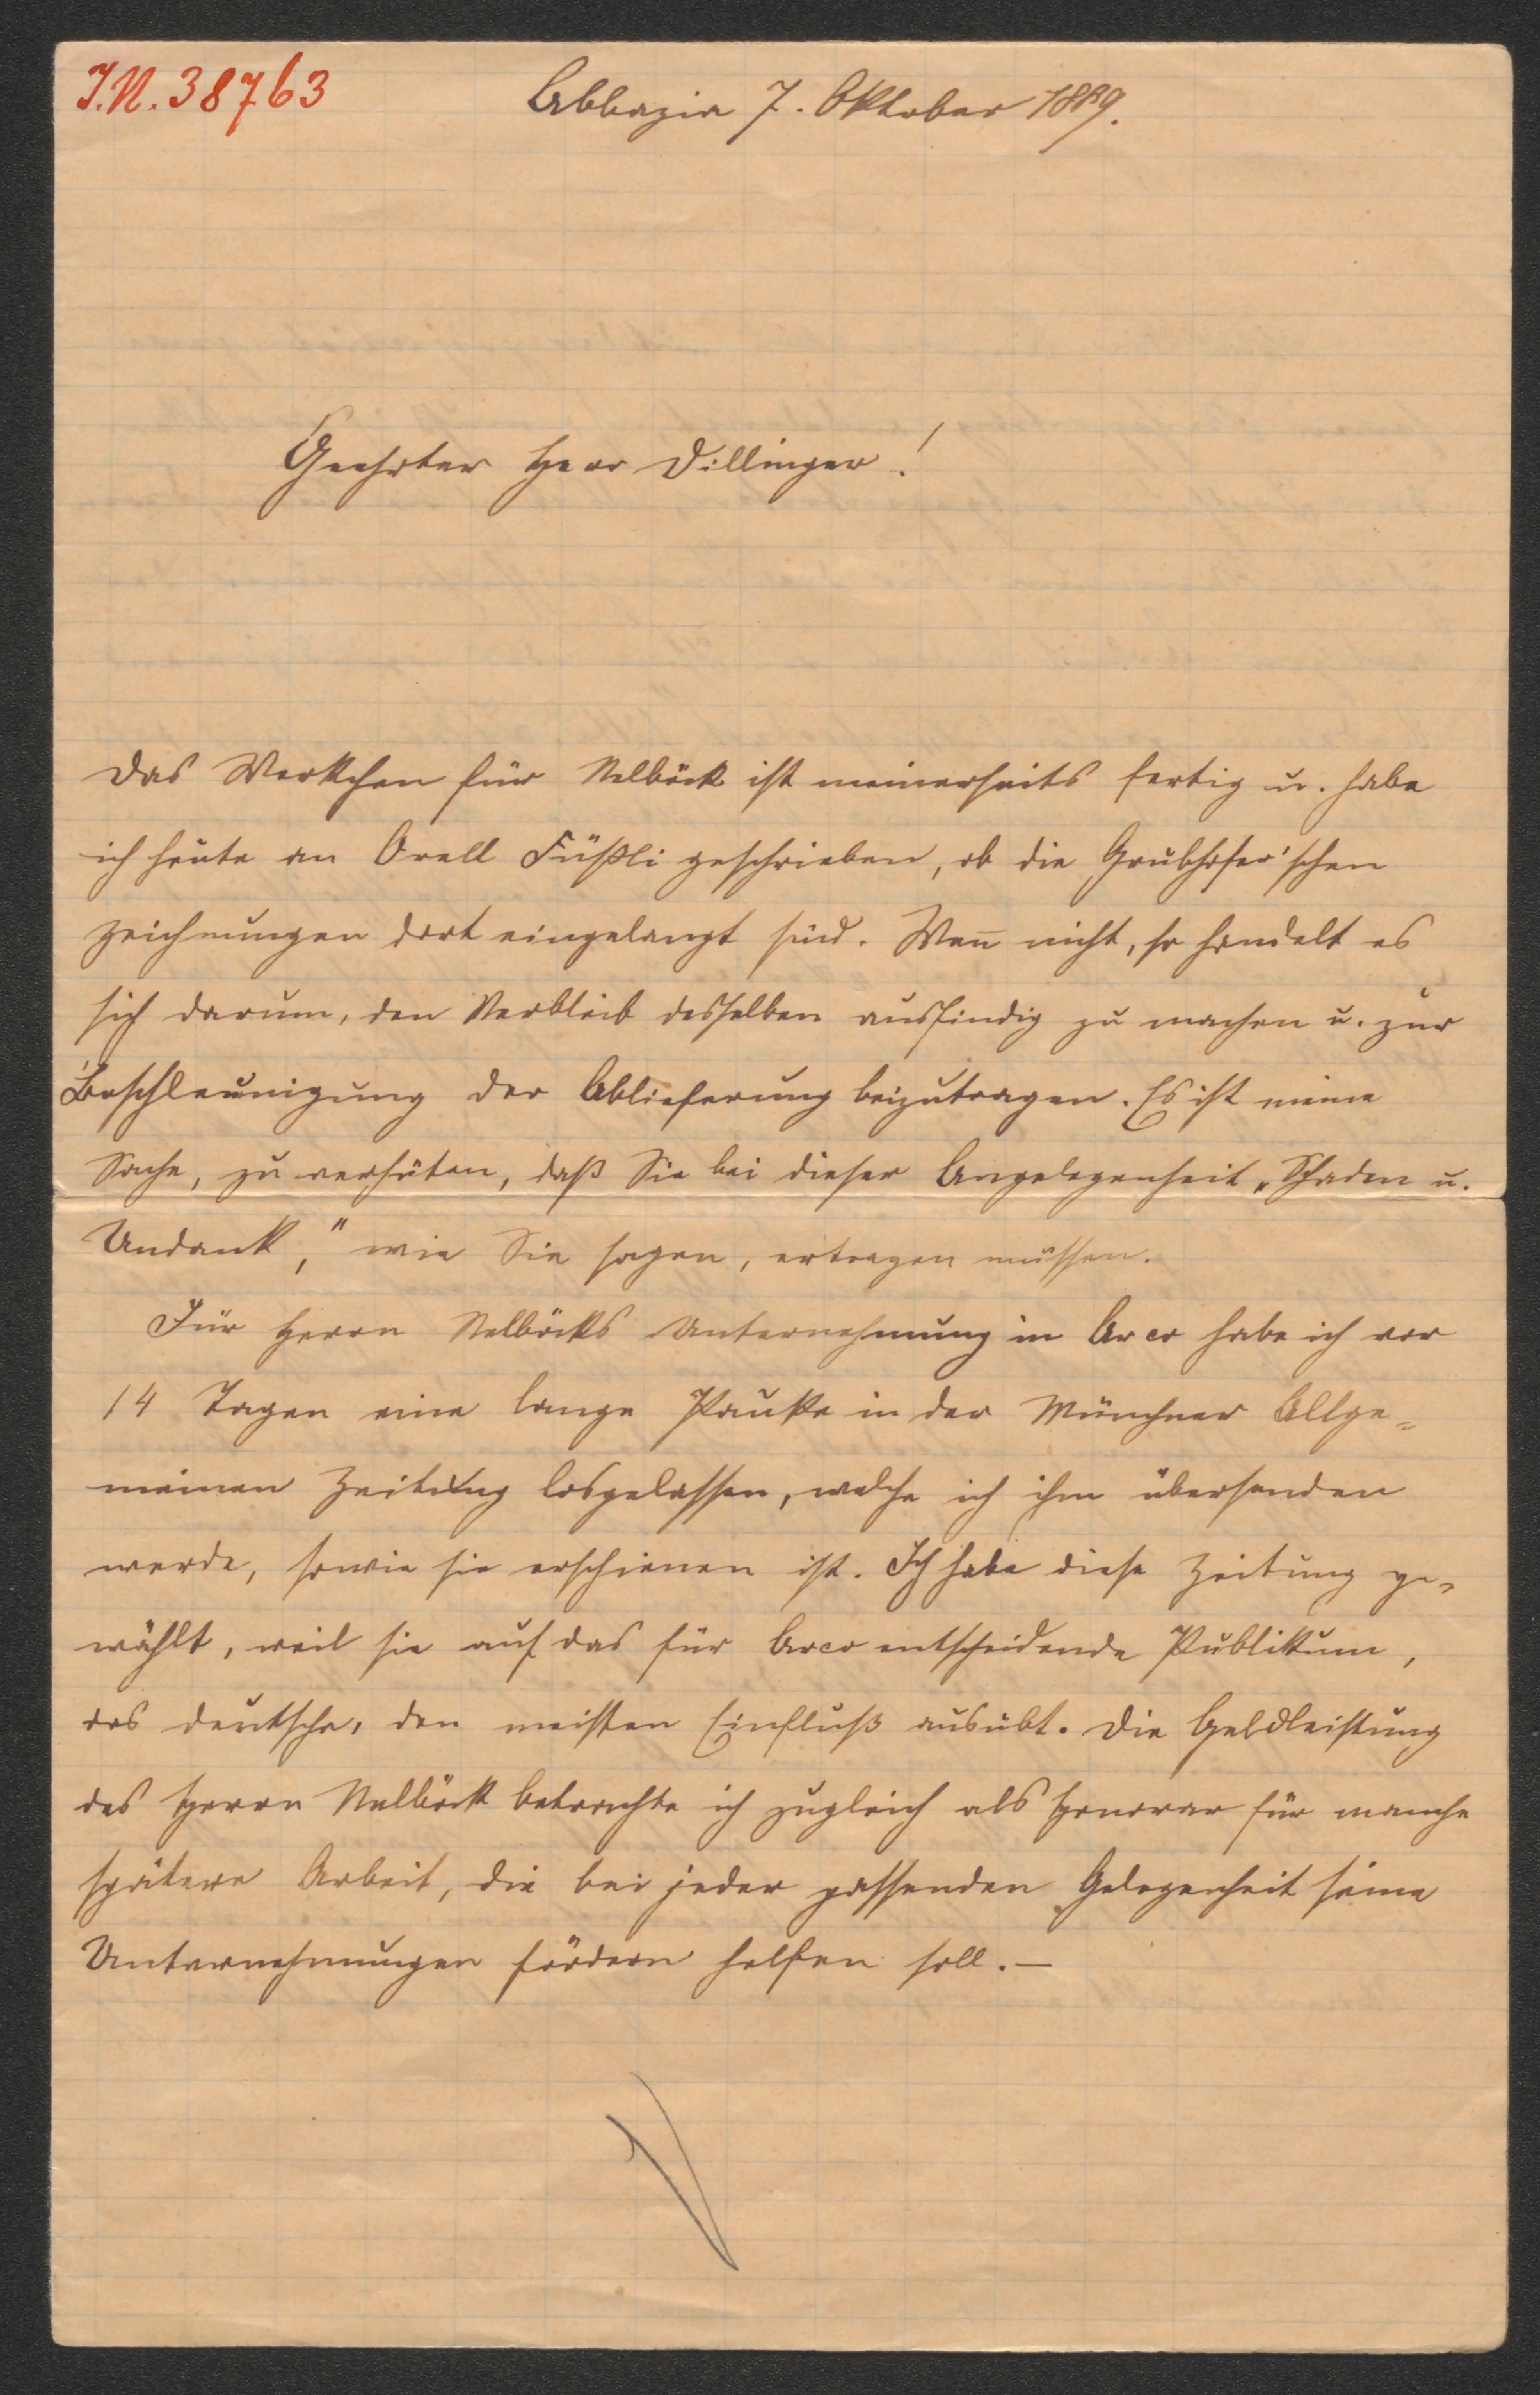 I.N. 38763
Abbazia 7. Oktober 1889.
Geehrter Herr Dillinger!
Das Werkchen für Nelböck ist meinerseits fertig u. habe
ich heute an Orell Füßli geschrieben, ob die Grubhofer'schen
Zeichnungen dort eingelangt sind. Wen̅ nicht, so handelt es
sich darum, den Verbleib desselben ausfindig zu machen u. zur
Beschleunigung der Ablieferung beizutragen. Es ist meine
Sache, zu verhüten, daß Sie bei dieser Angelegenheit „Schaden u.
Undank," wie Sie sagen, ertragen müssen.
Für Herrn Nelböcks Unternehmung in Arco habe ich vor
14 Tagen eine lange Pauke in der Münchner Allge=
meinen Zeitung losgelassen, welche ich ihm übersenden
werde, sowie sie erschienen ist. Ich habe diese Zeitung ge=
wählt, weil sie auf das für Arco entscheidende Publikum,
das deutsche, den meisten Einfluß ausübt. Die Geldleistung
des Herrn Nelböck betrachte ich zugleich als Honorar für manche
spätere Arbeit, die bei jeder passenden Gelegenheit seine
Unternehmungen fördern helfen soll.—